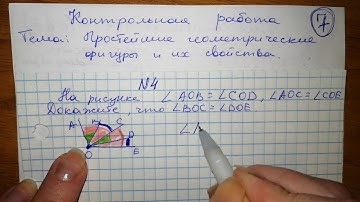 Контрольная работа
7
Тема: Простейшие геометрические
фигуры и их свойства.
N4
На рисунке ∠AOB = ∠COD, ∠AOC = ∠COE
Докажите, что ∠BOC = ∠DOE.
A B C
D
O E
∠A